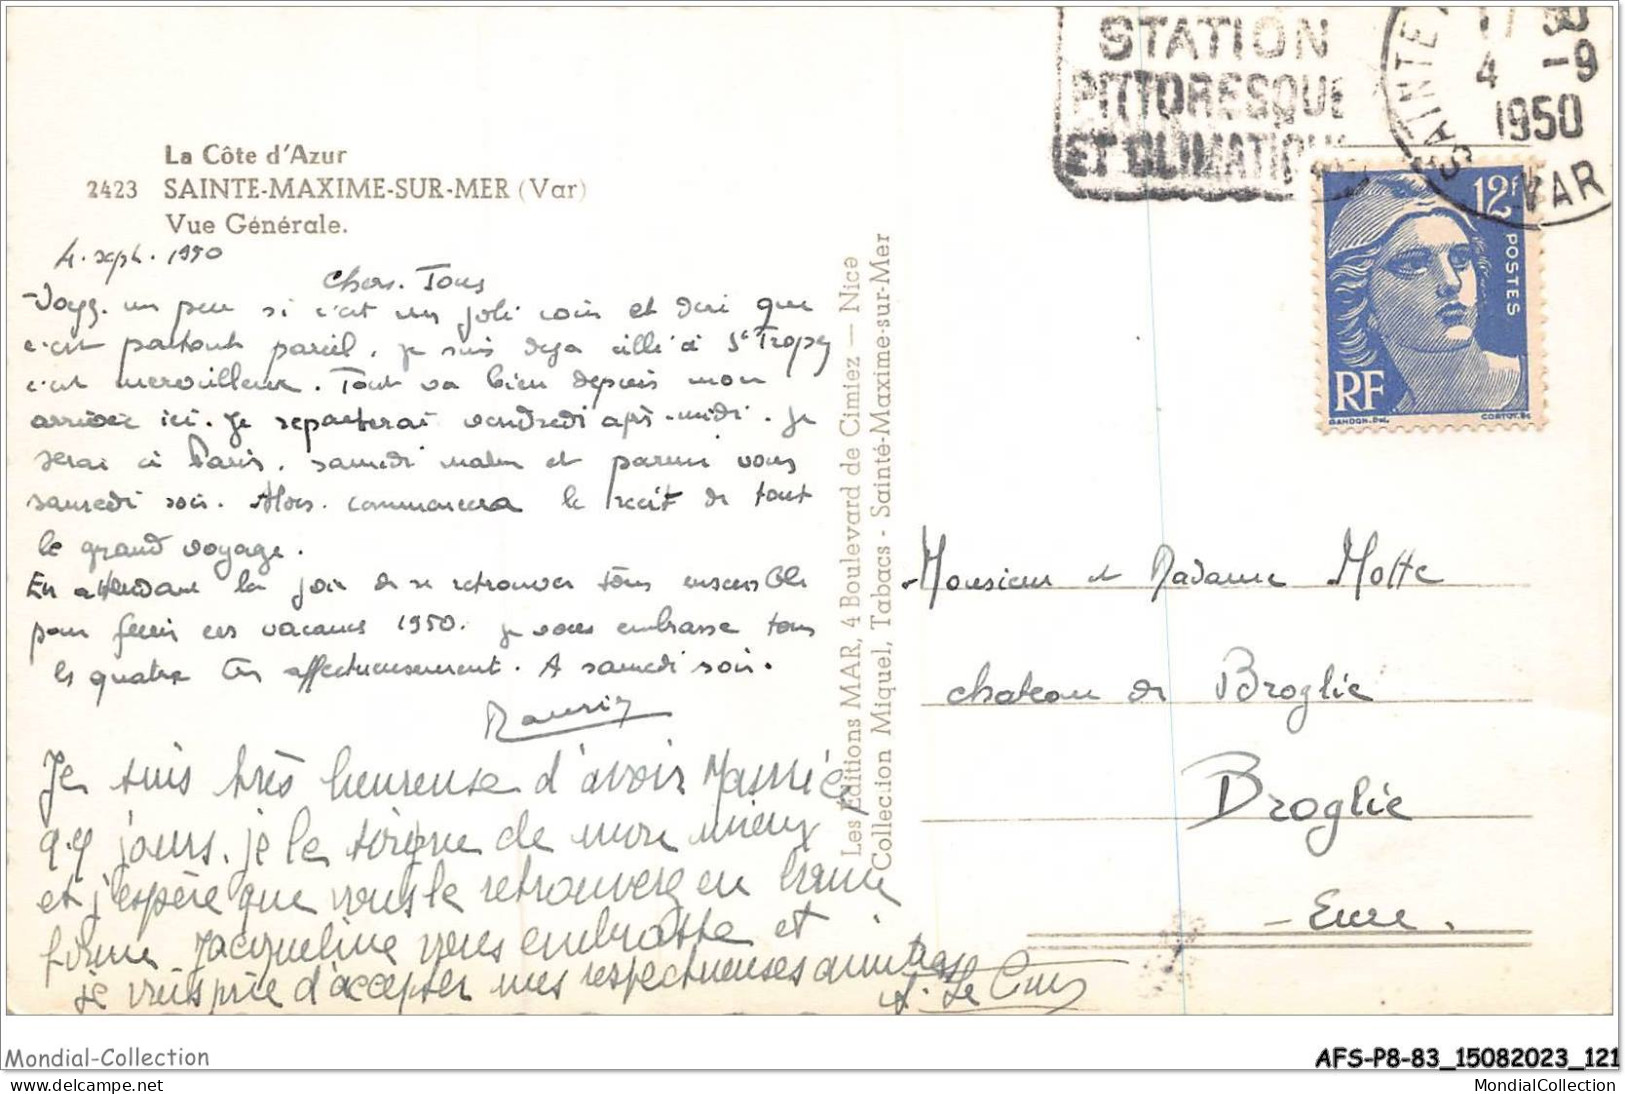 La Côte d'Azur
2423 SAINTE-MAXIME-SUR-MER (Var)
Vue Générale.
4. sept. 1950
Chers. Tous
Voyez. un peu si c'est un joli coin et dire que
c'est partout pareil. je suis deja allé à St Tropez
c'est merveilleux. Tout va bien depuis mon
arrivée ici. Je repartirai vendredi aprè-midi. Je
serai à Paris. samedi matin et parmi vous
samedi soir. Alors. commencera le récit de tout
le grand voyage.
En attendant la joie de se retrouver tous ensemble
pour finir ces vacances 1950. je vous embrasse tous
les quatre très affectueusement. A samedi soir.
Je suis très heureuse d'avoir
qq jours. je le soigne de mon mieux
et j'espère que vous le retrouverez en bonne
forme Jacqueline vous embrasse et
je vous prie d'accepter mes respectueuses amitiés
Le
Les Editions MAR, 4 Boulevard de Cimiez — Nice
Collection Miquel, Tabacs - Sainte-Maxime-sur-Mer
STATION
PITTORESQUE
ET CLIMATIQUE
SAINTE
17 30
4 -9
1950
VAR
12F
POSTES
RF
GANDON.Del.
CORTOT.Sc
Monsieur et Madame Motte
chateau de Broglie
Broglie
- Eure.
Mondial-Collection
AFS-P8-83_15082023_121
AFS-P8-83_15082023_121.jpg
MondialCollection